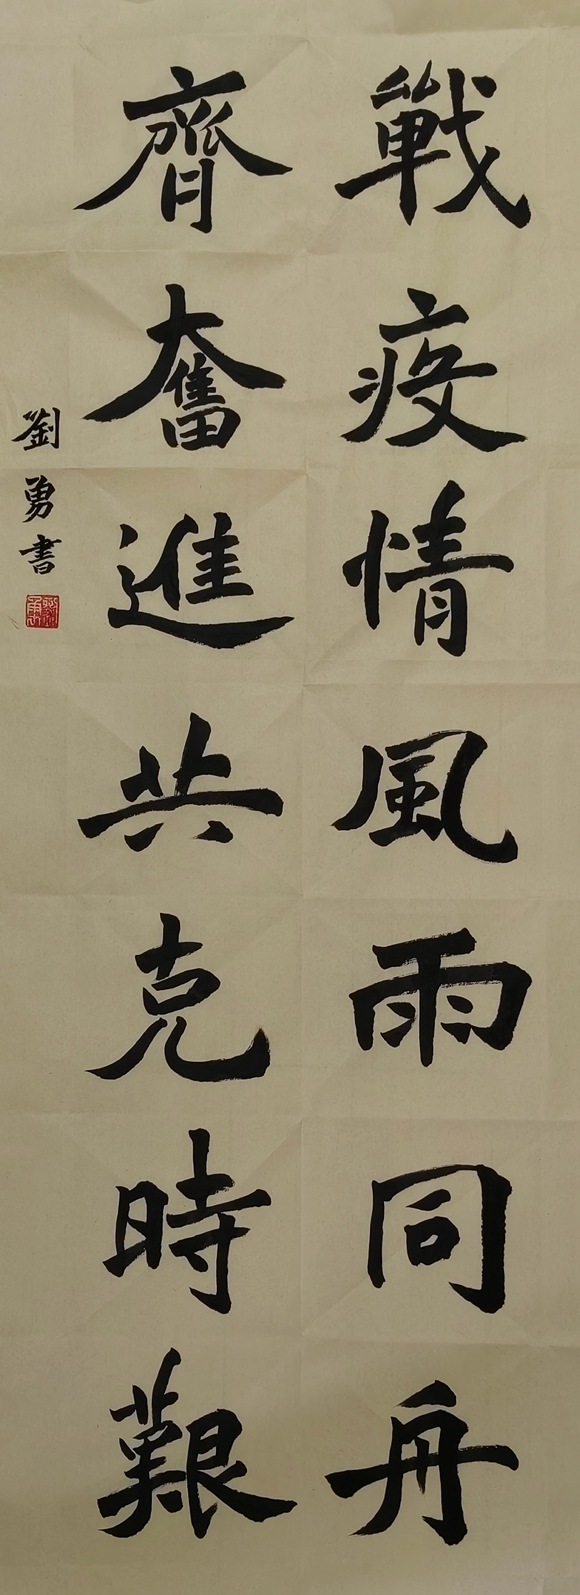 戰疫情風雨同舟
齊奮進共克時艱
劉勇書